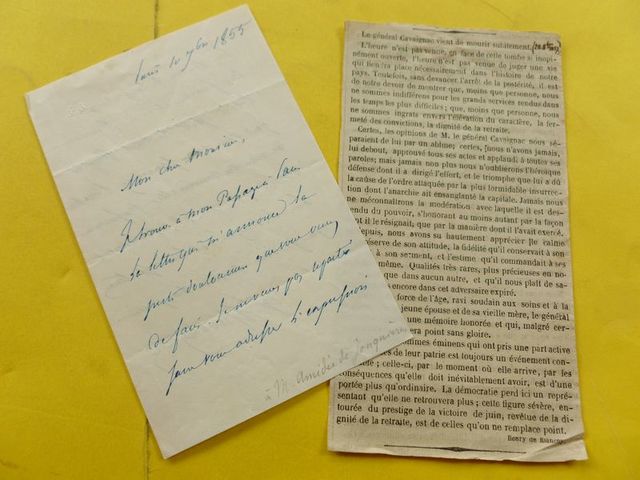 Paris 10 9bre 1855
Mon cher Monsieur,
Je trouve à mon Passage à Paris
la lettre qui m'annonce la
perte douloureuse que vous venez
de faire. Je ne veux pas repartir
sans vous adresser
à M. Amédée de Jonquières
Le général Cavaignac vient de mourir subitement.
L'heure n'est pas venue, en face de cette tombe si inopi-
nément ouverte, l'heure n'est pas venue de juger une vie
qui tiendra place nécessairement dans l'histoire de notre
pays. Toutefois, sans devancer l'arrêt de la postérité, il est
de notre devoir de montrer que, moins que personne, nous
ne sommes indifférens pour les grands services rendus dans
les temps les plus difficiles; que, moins que personne, nous
ne sommes ingrats envers l'élévation du caractère, la fer-
meté des convictions, la dignité de la retraite.
Certes, les opinions de M. le général Cavaignac nous sé-
paraient de lui par un abîme; certes, nous n'avons jamais,
lui debout, approuvé tous ses actes et applaudi à toutes ses
paroles; mais jamais non plus nous n'oublierons l'héroïque
défense dont il a dirigé l'effort, et le triomphe que lui a dû
la cause de l'ordre attaquée par la plus formidable insurrec-
tion dont l'anarchie ait ensanglanté la capitale. Jamais nous
ne méconnaîtrons la modération avec laquelle il est des-
cendu du pouvoir, s'honorant au moins autant par la façon
dont il le résignait, que par la manière dont il l'avait exercé.
depuis, nous avons su hautement apprécier le calme
réserve de son attitude, la fidélité qu'il conservait à son
à son serment, et l'estime qu'il commandait à ses
même. Qualités très rares, plus précieuses en no-
que dans aucun autre, et qu'il nous plaît de sa-
encore dans cet adversaire expiré.
force de l'âge, ravi soudain aux soins et à la
jeune épouse et de sa vieille mère, le général
une mémoire honorée et qui, malgré cer-
sera point sans gloire.
hommes éminens qui ont pris une part active
de leur patrie est toujours un événement con-
; celle-ci, par le moment où elle arrive, par les
conséquences qu'elle doit inévitablement avoir, est d'une
portée plus qu'ordinaire. La démocratie perd ici un repré-
sentant qu'elle ne retrouvera plus; cette figure sévère, en-
tourée du prestige de la victoire de juin, revêtue de la di-
gnité de la retraite, est de celles qu'on ne remplace point.
Henry de Riancey.